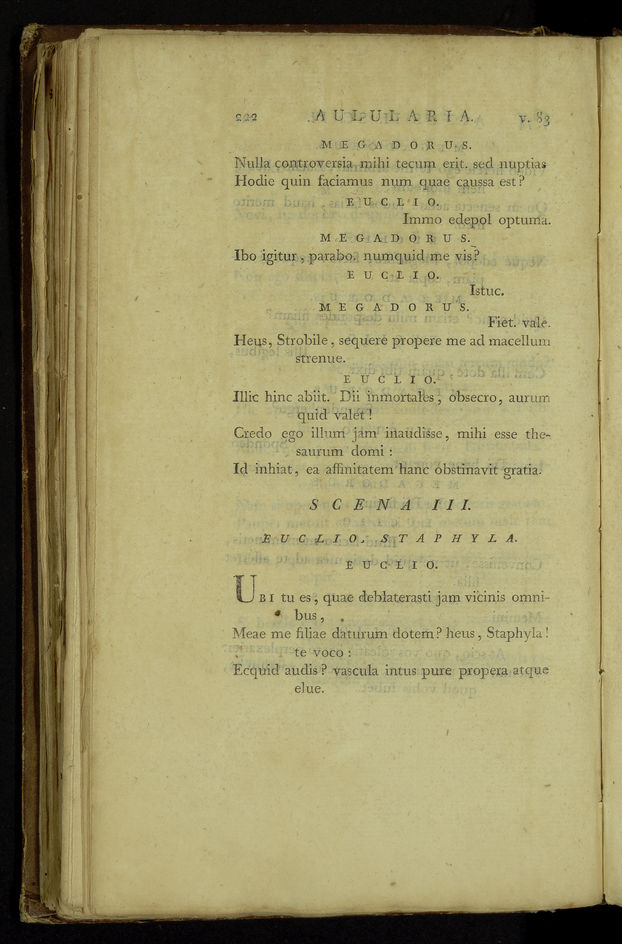 222 AULULARIA. v. 83
MEGADORUS.
Nulla controversia mihi tecum erit. sed nuptias
Hodie quin faciamus num quae caussa est?
EUCLIO.
Immo edepol optuma.
MEGADORUS.
Ibo igitur, parabo. numquid me vis?
EUCLIO.
Istuc.
MEGADORUS.
Fiet. vale.
Heus, Strobile, sequere propere me ad macellum
strenue.
EUCLIO.
Illic hinc abiit. Dii inmortales, obsecro, aurum
quid valet!
Credo ego illum jam inaudisse, mihi esse the-
saurum domi:
Id inhiat, ea affinitatem hanc obstinavit gratia.
SCENA III.
EUCLIO. STAPHYLA.
EUCLIO.
UBI tu es, quae deblaterasti jam vicinis omni-
bus,
Meae me filiae daturum dotem? heus, Staphyla!
te voco:
Ecquid audis? vascula intus pure propera atque
elue.